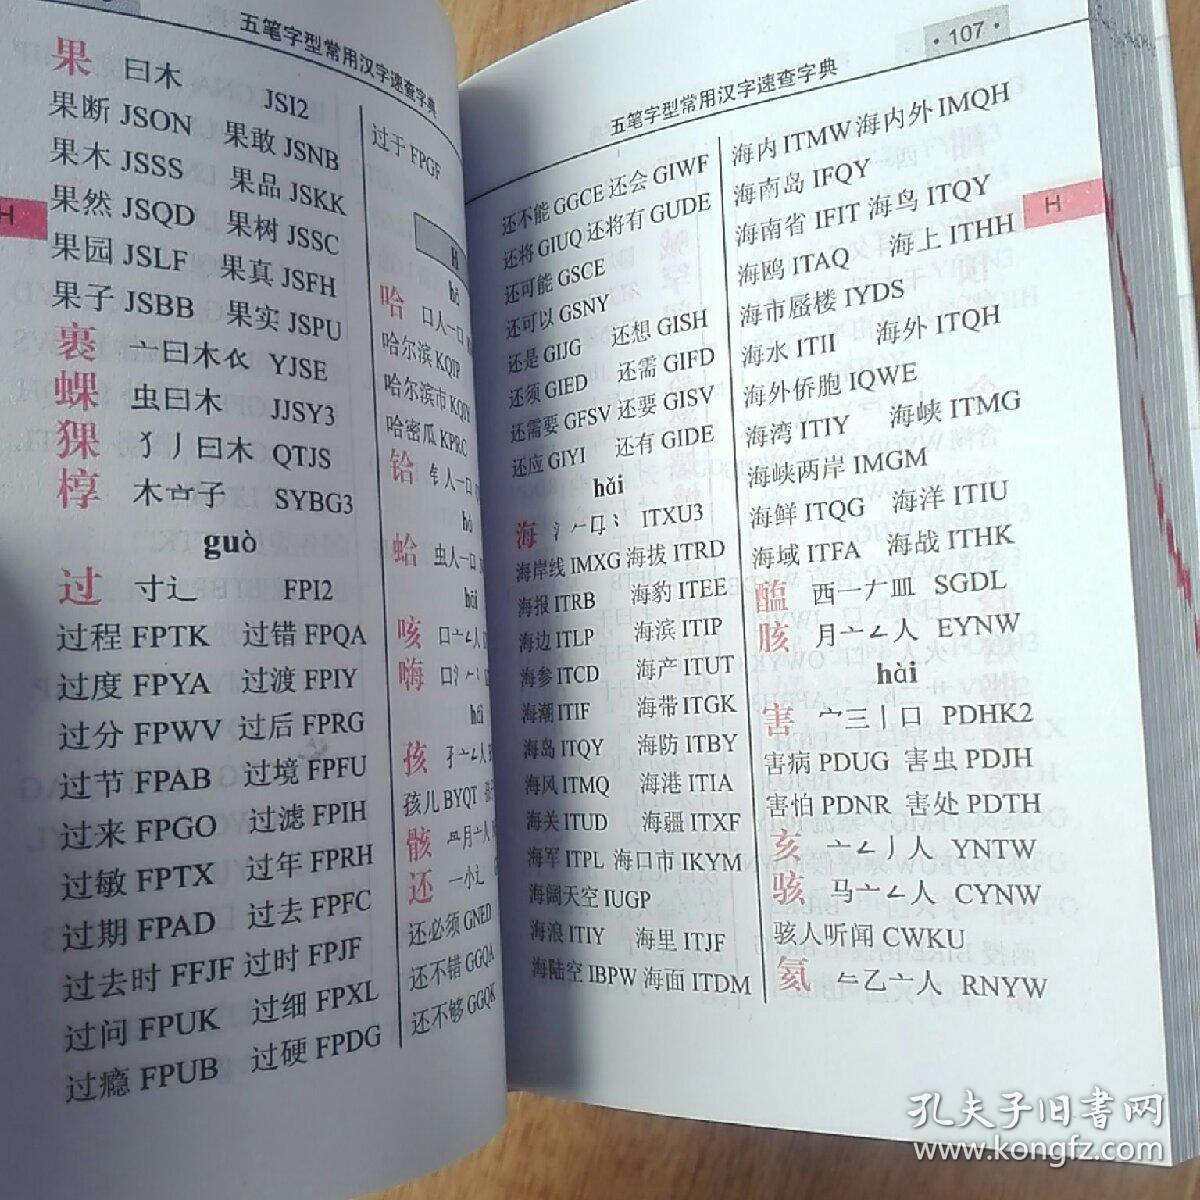 五笔字型常用汉字速查字典
H
果 曰木 JSI2
果断 JSON 果敢 JSNB
果木 JSSS 果品 JSKK
果然 JSQD 果树 JSSC
果园 JSLF 果真 JSFH
果子 JSBB 果实 JSPU
裹 亠曰木𧘇 YJSE
蜾 虫曰木 JJSY3
猓 犭丿曰木 QTJS
椁 木亠子 SYBG3
guò
过 寸辶 FPI2
过程 FPTK 过错 FPQA
过度 FPYA 过渡 FPIY
过分 FPWV 过后 FPRG
过节 FPAB 过境 FPFU
过来 FPGO 过滤 FPIH
过敏 FPTX 过年 FPRH
过期 FPAD 过去 FPFC
过去时 FFJF 过时 FPJF
过问 FPUK 过细 FPXL
过瘾 FPUB 过硬 FPDG
过于 FPGF
H
哈 口人一口
哈尔滨 KQIP
哈尔滨市 KQIY
哈密瓜 KPRC
铪 钅人一口
蛤 虫人一口
咳 口亠𠃋人
嗨 口氵𠂉
孩 孑亠𠃋人
孩儿 BYQT
骸 月亠人
还 一小辶
还必须 GNED
还不错 GGQA
还不够 GGQK
五笔字型常用汉字速查字典
·107·
还不能 GGCE 还会 GIWF
还将 GIUQ 还将有 GUDE
还可能 GSCE
还可以 GSNY
还是 GIJG 还想 GISH
还须 GIED 还需 GIFD
还需要 GFSV 还要 GISV
还应 GIYI 还有 GIDE
hǎi
海 氵𠂉口⺀ ITXU3
海岸线 IMXG 海拔 ITRD
海报 ITRB 海豹 ITEE
海边 ITLP 海滨 ITIP
海参 ITCD 海产 ITUT
海潮 ITIF 海带 ITGK
海岛 ITQY 海防 ITBY
海风 ITMQ 海港 ITIA
海关 ITUD 海疆 ITXF
海军 ITPL 海口市 IKYM
海阔天空 IUGP
海浪 ITIY 海里 ITJF
海陆空 IBPW 海面 ITDM
海内 ITMW 海内外 IMQH
海南岛 IFQY
海南省 IFIT 海鸟 ITQY
海鸥 ITAQ 海上 ITHH
海市蜃楼 IYDS
海水 ITII 海外 ITQH
海外侨胞 IQWE
海湾 ITIY 海峡 ITMG
海峡两岸 IMGM
海鲜 ITQG 海洋 ITIU
海域 ITFA 海战 ITHK
醢 西一ナ皿 SGDL
胲 月亠𠃋人 EYNW
hài
害 宀三丨口 PDHK2
害病 PDUG 害虫 PDJH
害怕 PDNR 害处 PDTH
亥 亠𠃋丿人 YNTW
骇 马亠𠃋人 CYNW
骇人听闻 CWKU
氦 𠂉乙亠人 RNYW
H
孔夫子旧书网
www.kongfz.com